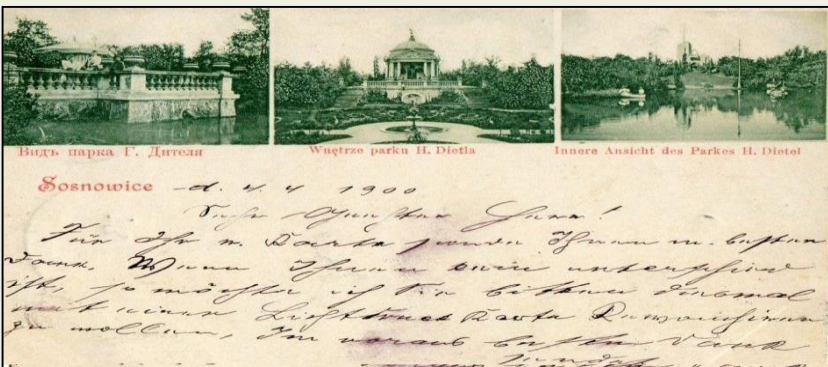 Видъ парка Г. Дителя
Wnętrze parku H. Dietla
Innere Ansicht des Parkes H. Dietel
Sosnowice - d. 4. 4 1900
Sehr Geehrter Herr!
Für Ihre w. Karte sende Ihnen m. besten
Dank. Wenn Ihnen kein unterschied
ist, so möchte ich Sie bitten diesmal
mit einer Lichtdruck Karte Revanchiren
zu wollen, Im voraus besten Dank